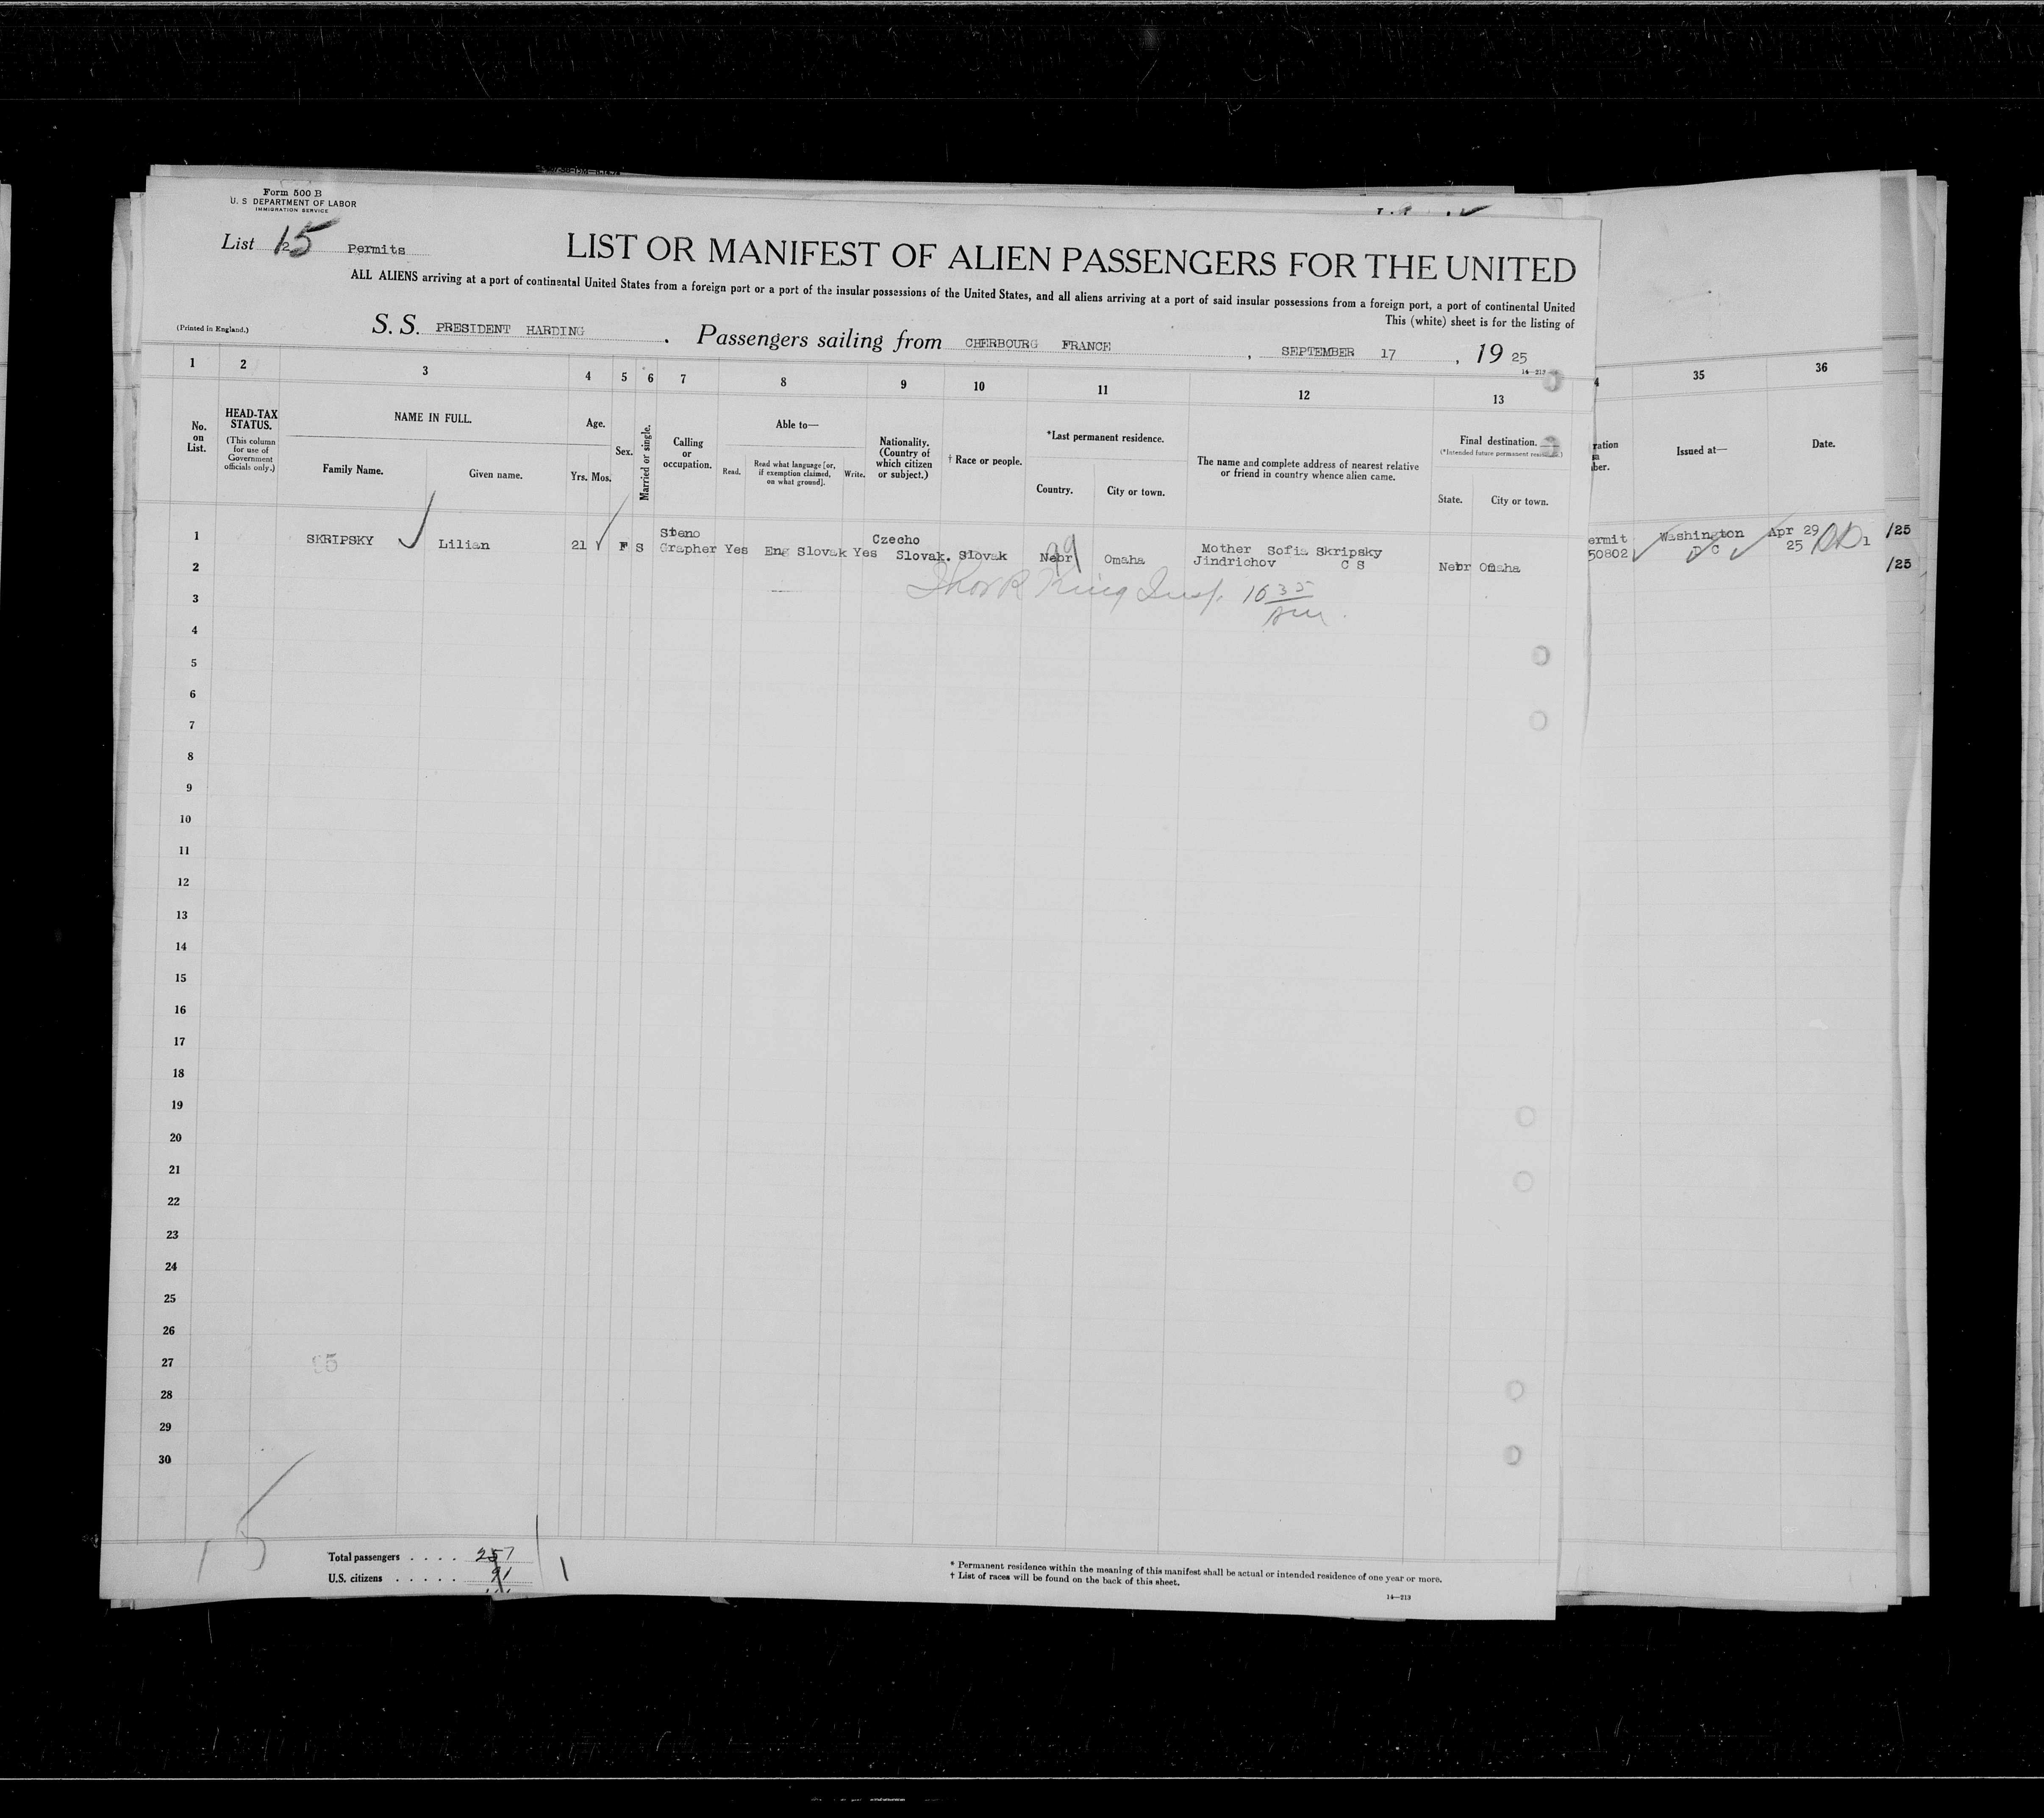 Form 500 B
U. S DEPARTMENT OF LABOR
IMMIGRATION SERVICE
List 15 Permits
LIST OR MANIFEST OF ALIEN PASSENGERS FOR THE UNITED
ALL ALIENS arriving at a port of continental United States from a foreign port or a port of the insular possessions of the United States, and all aliens arriving at a port of said insular possessions from a foreign port, a port of continental United
This (white) sheet is for the listing of
(Printed in England.)
S. S. PRESIDENT HARDING . Passengers sailing from CHERBOURG FRANCE , SEPTEMBER 17 , 19 25
14—213
1 2 3 4 5 6 7 8 9 10 11 12 13
35 36
No. on List.
HEAD-TAX STATUS.
(This column for use of Government officials only.)
NAME IN FULL.
Family Name. Given name.
Age.
Yrs. Mos.
Sex.
Married or single.
Calling or occupation.
Able to—
Read.
Read what language [or, if exemption claimed, on what ground].
Write.
Nationality. (Country of which citizen or subject.)
† Race or people.
*Last permanent residence.
Country. City or town.
The name and complete address of nearest relative or friend in country whence alien came.
Final destination.
State. City or town.
Issued at—
Date.
1 SKRIPSKY Lilian 21 F S Steno Grapher Yes Eng Slovak Yes Czecho Slovak. Slovak Nebr Omaha Mother Sofia Skripsky Jindrichov C S Nebr Omaha
ermit 50802 Washington D C Apr 29 25 1 /25
/25
King Insp. 10 35 am
2
3
4
5
6
7
8
9
10
11
12
13
14
15
16
17
18
19
20
21
22
23
24
25
26
27
28
29
30
Total passengers . . . .
U.S. citizens . . . . .
* Permanent residence within the meaning of this manifest shall be actual or intended residence of one year or more.
† List of races will be found on the back of this sheet.
14—213